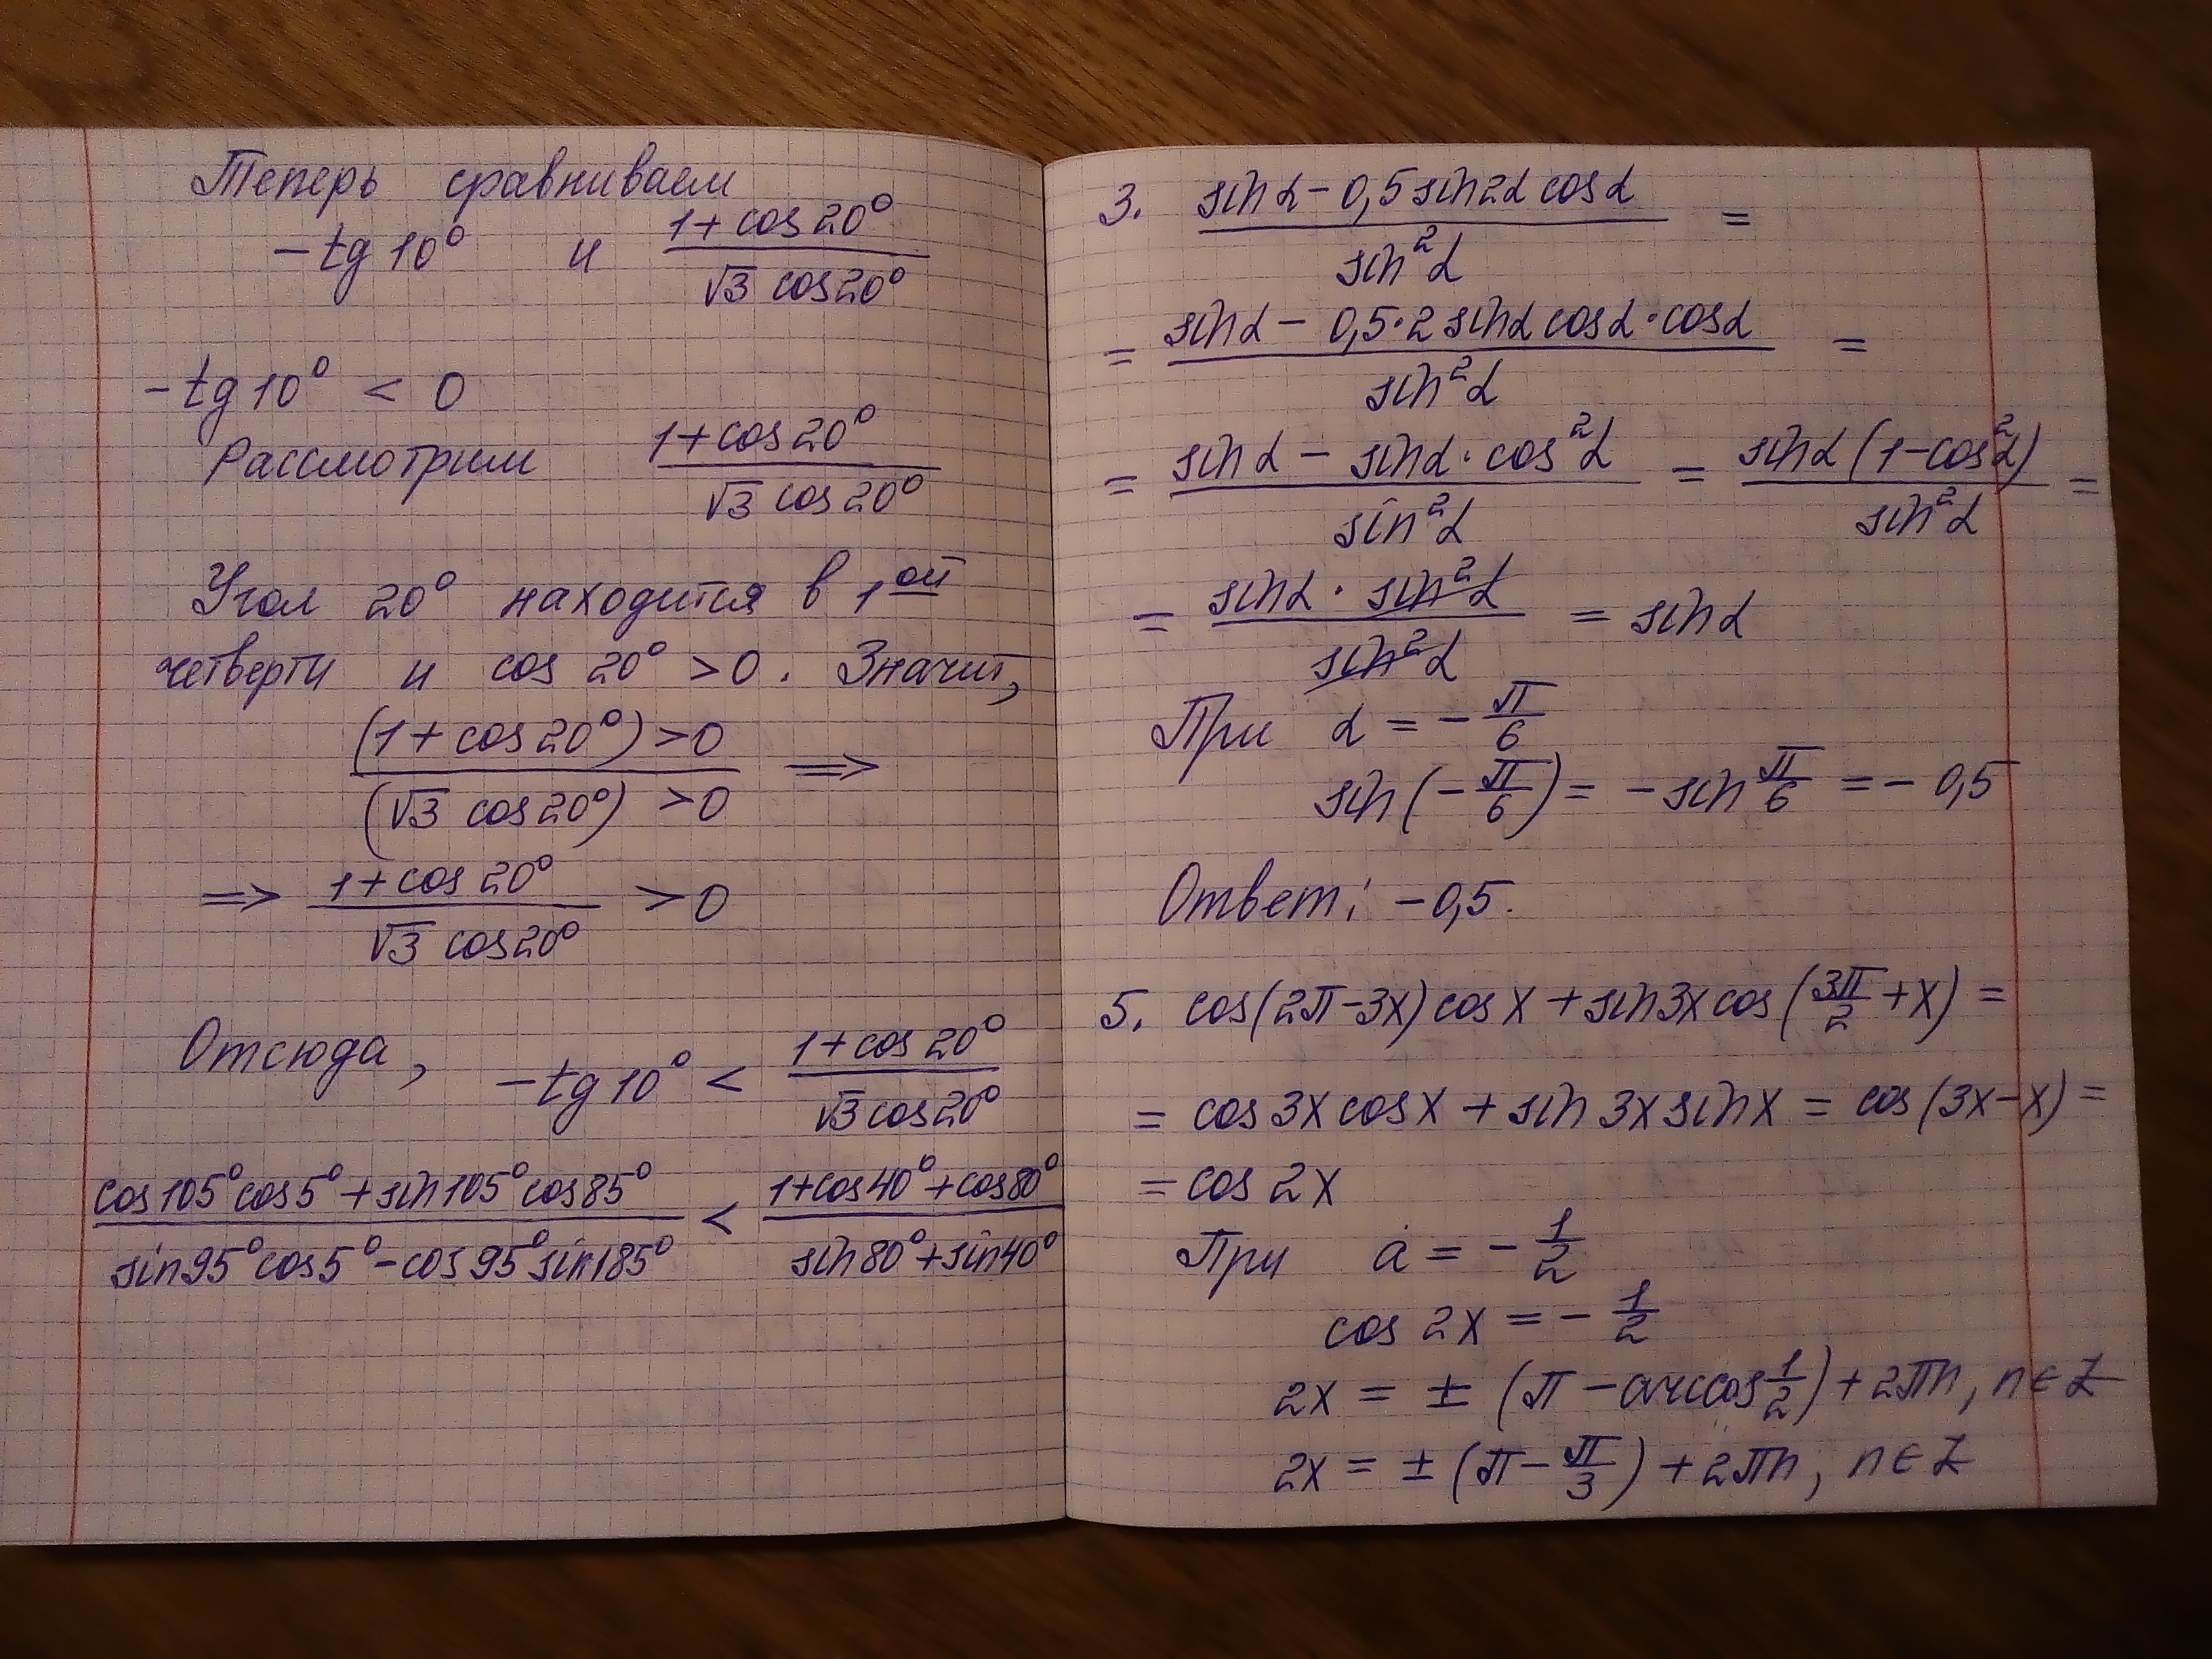 Теперь сравниваем
-tg 10° и (1+cos 20°)/(√3 cos 20°)
-tg 10° < 0
Рассмотрим (1+cos 20°)/(√3 cos 20°)
Угол 20° находится в 1ой
четверти и cos 20° > 0. Значит,
((1+cos 20°) > 0)/((√3 cos 20°) > 0) ⇒
⇒ (1+cos 20°)/(√3 cos 20°) > 0
Отсюда, -tg 10° < (1+cos 20°)/(√3 cos 20°)
(cos 105° cos 5° + sin 105° cos 85°)/(sin 95° cos 5° - cos 95° sin 185°) < (1+cos 40° + cos 80°)/(sin 80° + sin 40°)
3. (sin α - 0,5 sin 2α cos α)/(sin² α) =
= (sin α - 0,5·2 sin α cos α · cos α)/(sin² α) =
= (sin α - sin α · cos² α)/(sin² α) = (sin α (1-cos² α))/(sin² α) =
= (sin α · sin² α)/(sin² α) = sin α
При α = -π/6
sin(-π/6) = -sin π/6 = -0,5
Ответ: -0,5.
5. cos(2π-3x) cos x + sin 3x cos(3π/2 + x) =
= cos 3x cos x + sin 3x sin x = cos(3x-x) =
= cos 2x
При a = -1/2
cos 2x = -1/2
2x = ± (π - arccos 1/2) + 2πn, n ∈ Z
2x = ± (π - π/3) + 2πn, n ∈ Z